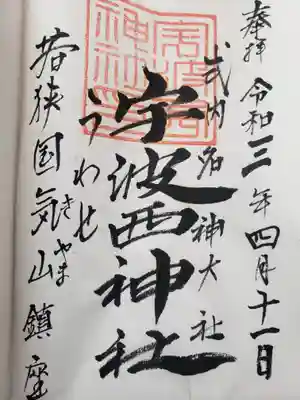 奉拝 令和三年四月十一日
式内名神大社
宇波西神社
うわせ
若狭国気山鎮座
きやま